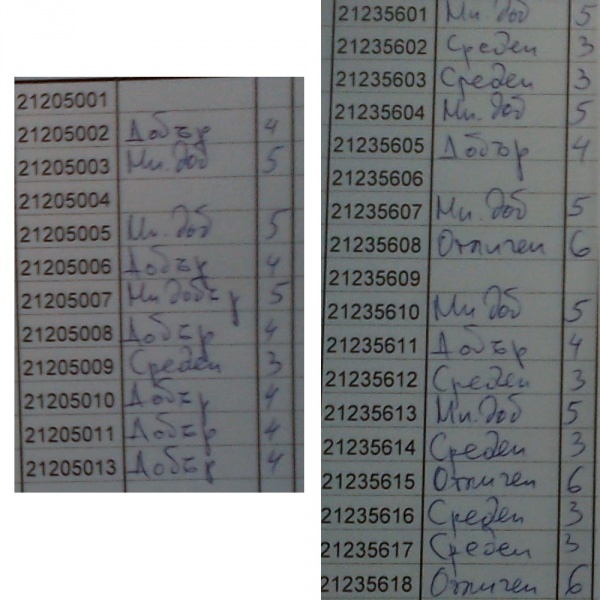 21205001
21205002 Добър 4
21205003 Мн. доб 5
21205004
21205005 Мн. доб 5
21205006 Добър 4
21205007 Мн. добър 5
21205008 Добър 4
21205009 Среден 3
21205010 Добър 4
21205011 Добър 4
21205013 Добър 4
21235601 Мн. доб 5
21235602 Среден 3
21235603 Среден 3
21235604 Мн. доб 5
21235605 Добър 4
21235606
21235607 Мн. доб 5
21235608 Отличен 6
21235609
21235610 Мн. доб 5
21235611 Добър 4
21235612 Среден 3
21235613 Мн. доб 5
21235614 Среден 3
21235615 Отличен 6
21235616 Среден 3
21235617 Среден 3
21235618 Отличен 6